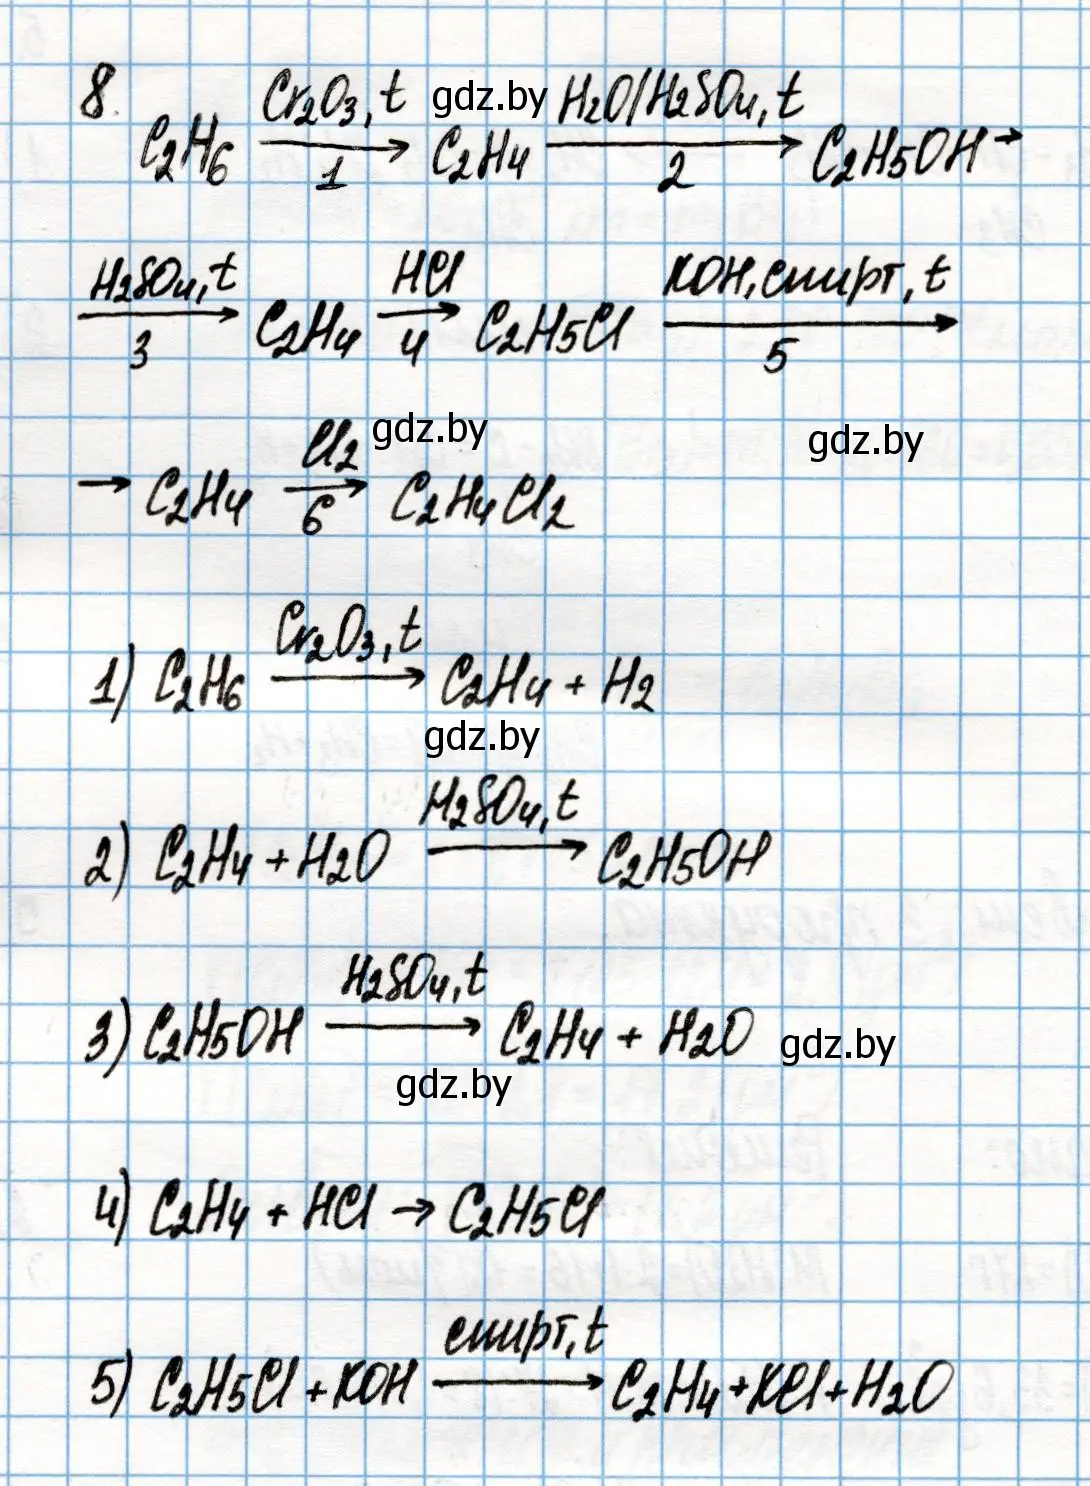 8.
C₂H₆ —Cr₂O₃, t / 1→ C₂H₄ —H₂O/H₂SO₄, t / 2→ C₂H₅OH →
gdz.by
—H₂SO₄, t / 3→ C₂H₄ —HCl / 4→ C₂H₅Cl —KOH, спирт, t / 5→
→ C₂H₄ —Cl₂ / 6→ C₂H₄Cl₂
gdz.by gdz.by
1) C₂H₆ —Cr₂O₃, t→ C₂H₄ + H₂
gdz.by
2) C₂H₄ + H₂O —H₂SO₄, t→ C₂H₅OH
3) C₂H₅OH —H₂SO₄, t→ C₂H₄ + H₂O
gdz.by
gdz.by
4) C₂H₄ + HCl → C₂H₅Cl
5) C₂H₅Cl + KOH —спирт, t→ C₂H₄ + KCl + H₂O